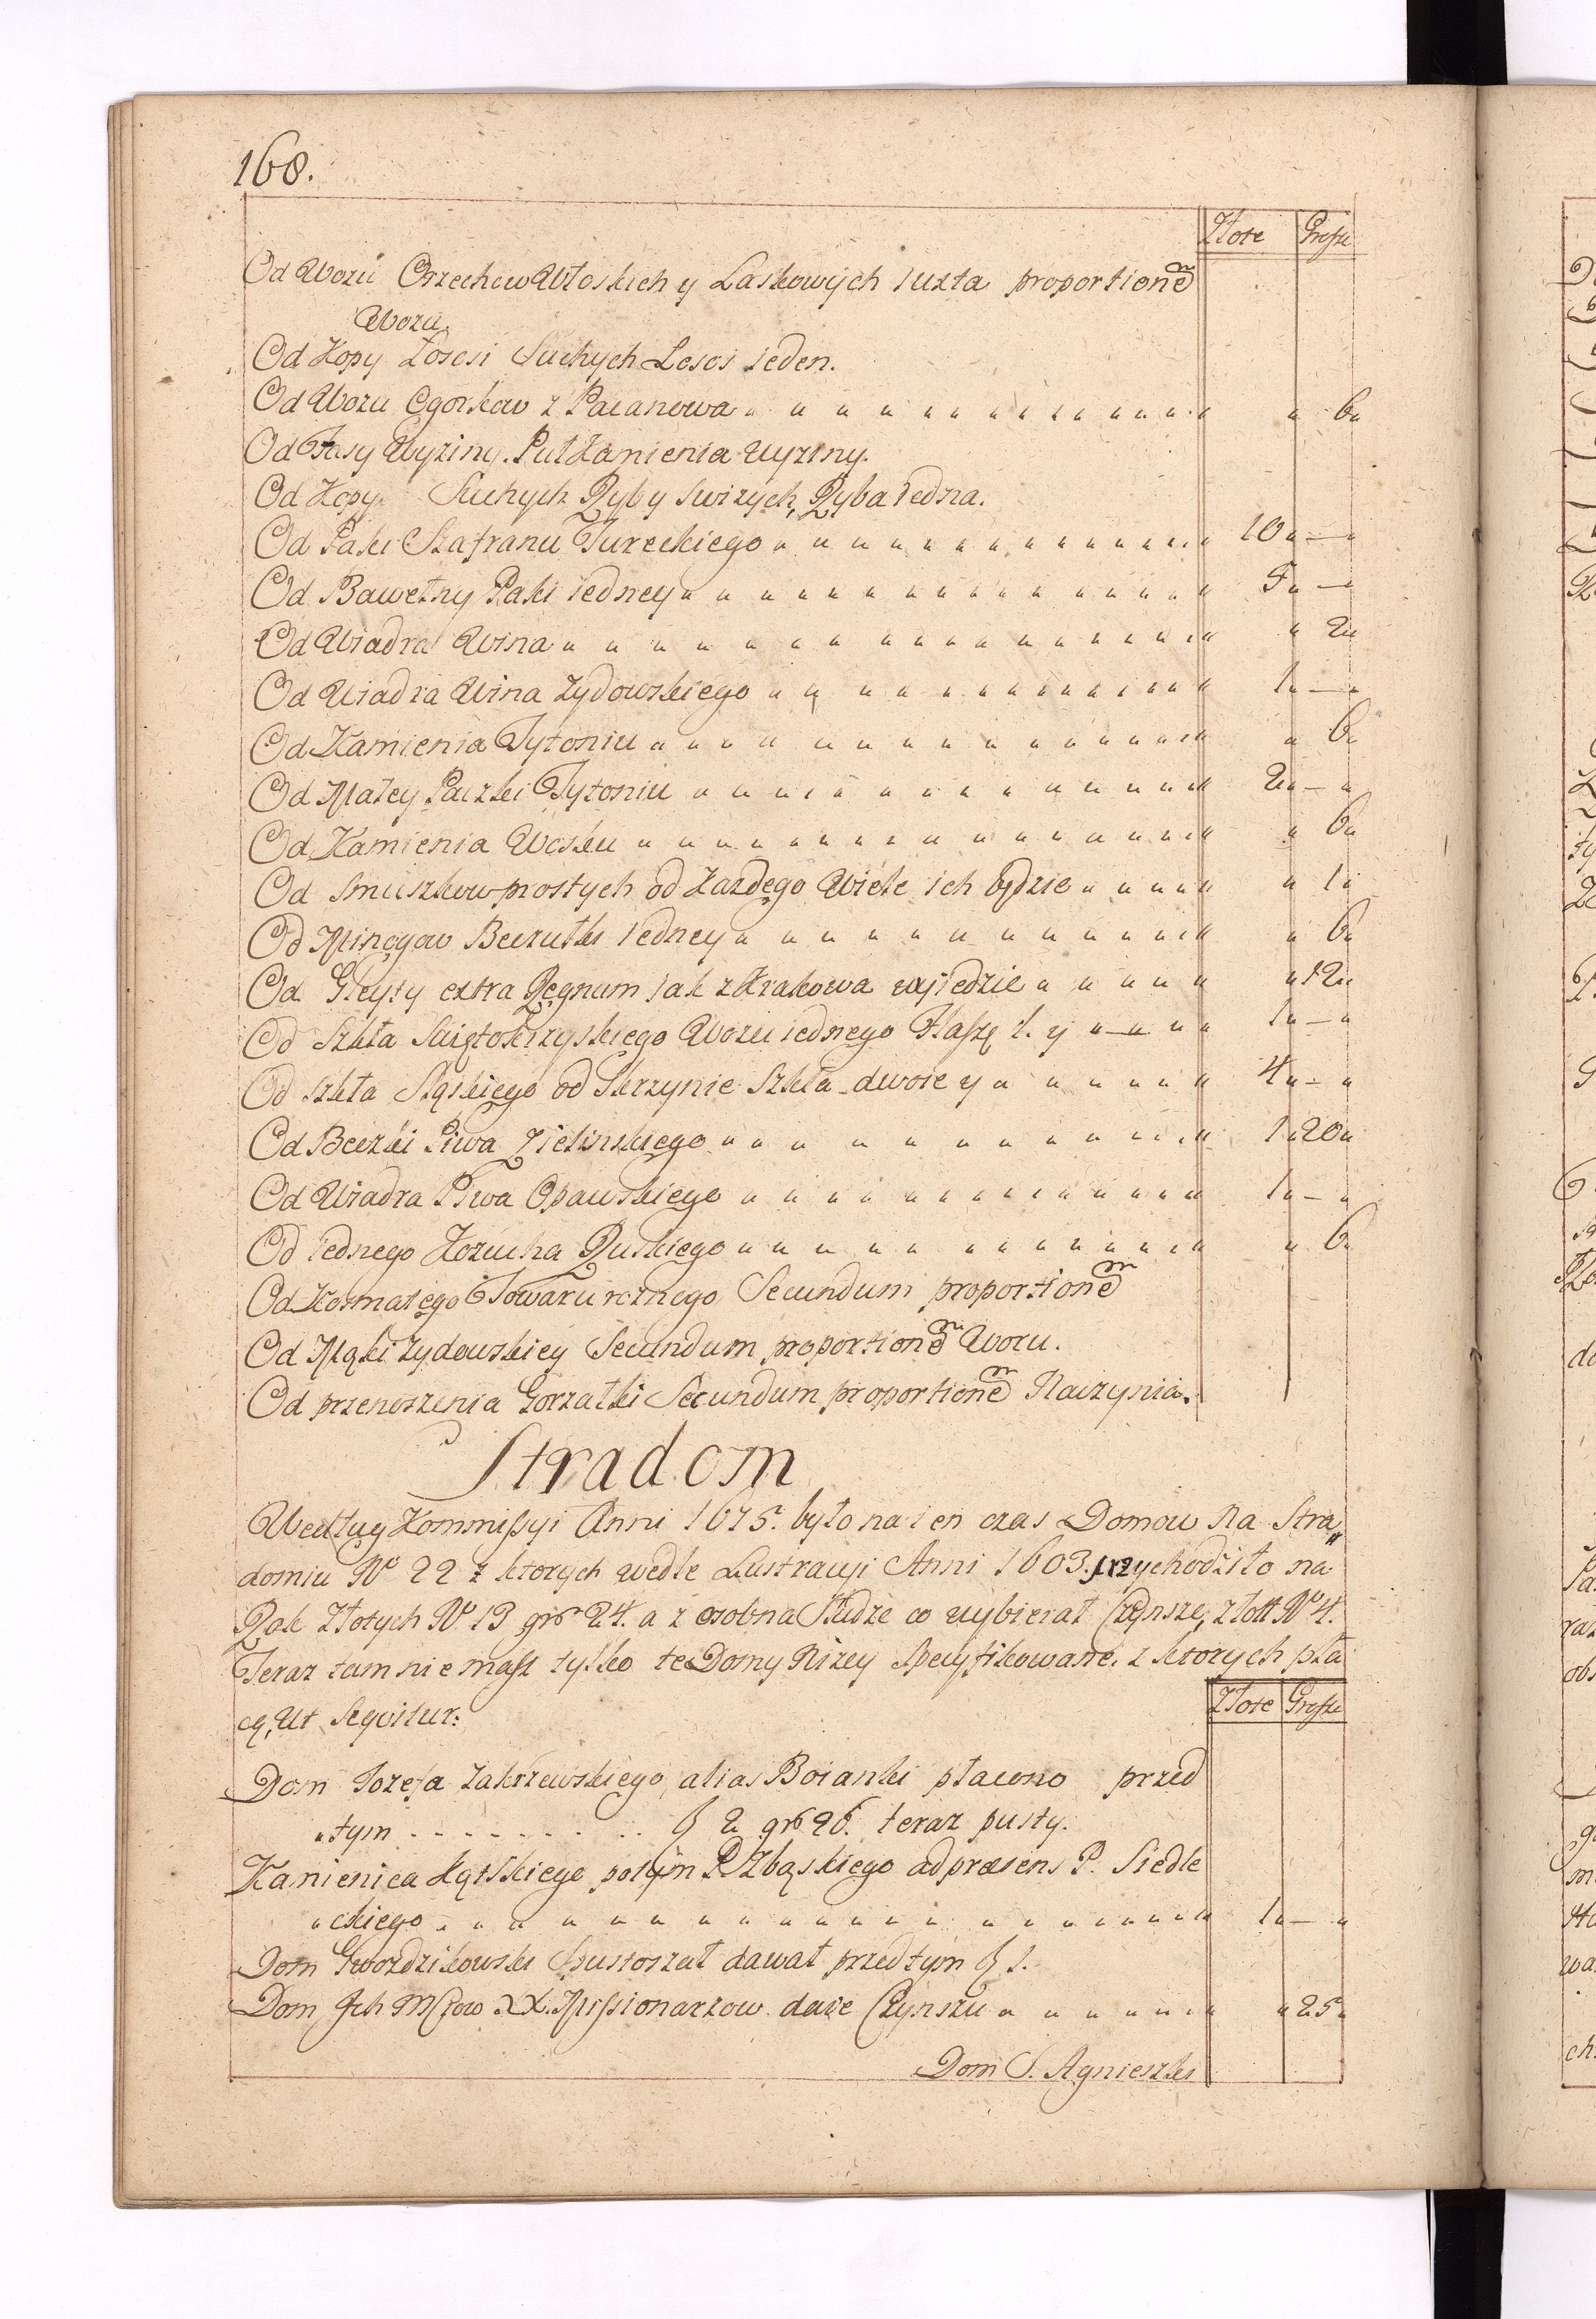 168.
Złote Grosze
Od Wozu Orzechow Włoskich y Laskowych iuxta proportionem
Wozu
Od Kopy Łososi Suchych Łosoś ieden.
Od Wozu Ogorkow z Pacanowa „ 6„
Od Fasy Wyziny. Puł Kamienia Wyziny.
Od Kopy Suchych Ryb y swizych, Ryba iedna.
Od Paki Szafranu Tureckiego 10„—„
Od Bawełny Paki iedney 5„—„
Od Wiadra Wina „ 2„
Od Wiadra Wina Zydowskiego 1„—„
Od Kamienia Tytoniu „ 6„
Od Małey Paczki Tytoniu 2„—„
Od Kamienia Wosku „ 6„
Od Smuszkow prostych od Kazdego Wiele ich będzie „ 1„
Od Minogow Beczułki iedney „ 6„
Od Gleyty extra Regnum iak z Krakowa wyiedzie „ 12„
Od Szkła Swiętokrzyskiego Wozu iednego Flaszę 1. y 1„—„
Od Szkła Sląskiego od Skrzynie Szkła dwoie y 4„—„
Od Beczki Piwa Zielinskiego 1„20„
Od Wiadra Piwa Opawskiego 1„—„
Od iednego Kozucha Ruskiego „ 6„
Od Kosmatego Towaru roznego Secundum proportionem
Od Mąki Zydowskiey Secundum proportionem Woru.
Od przenoszenia Gorzałki Secundum proportionem Naczynia.
Stradom
Według Kommissyi Anni 1675. było na ten czas Domow na Stra„
domiu No 22 z ktorych wedle Lustracyi Anni 1603. przychodziło na
Rok Złotych No 13 gr. 24. a z osobna Słudze co wybierał Czynsze, złott No 4.
Teraz tam nie masz tylko te Domy Nizey Specyfikowane, z ktorych pła
cą, Ut Seqvitur: Złote Grosze
Dom Jozefa Zakrzewskiego alias Boianki płacono przed
„tym . . . . . . . . . . f 2 gr 26. teraz pusty.
Kamienica Kątskiego potym P. Zbąskiego ad præsens P. Siedle
„ckiego 1„—„
Dom Gwozdzikowski Spustoszał dawał przedtym f 1.
Dom Jch MCiow XX. Missionarzow daie Czynszu „25„
Dom S. Agnieszki